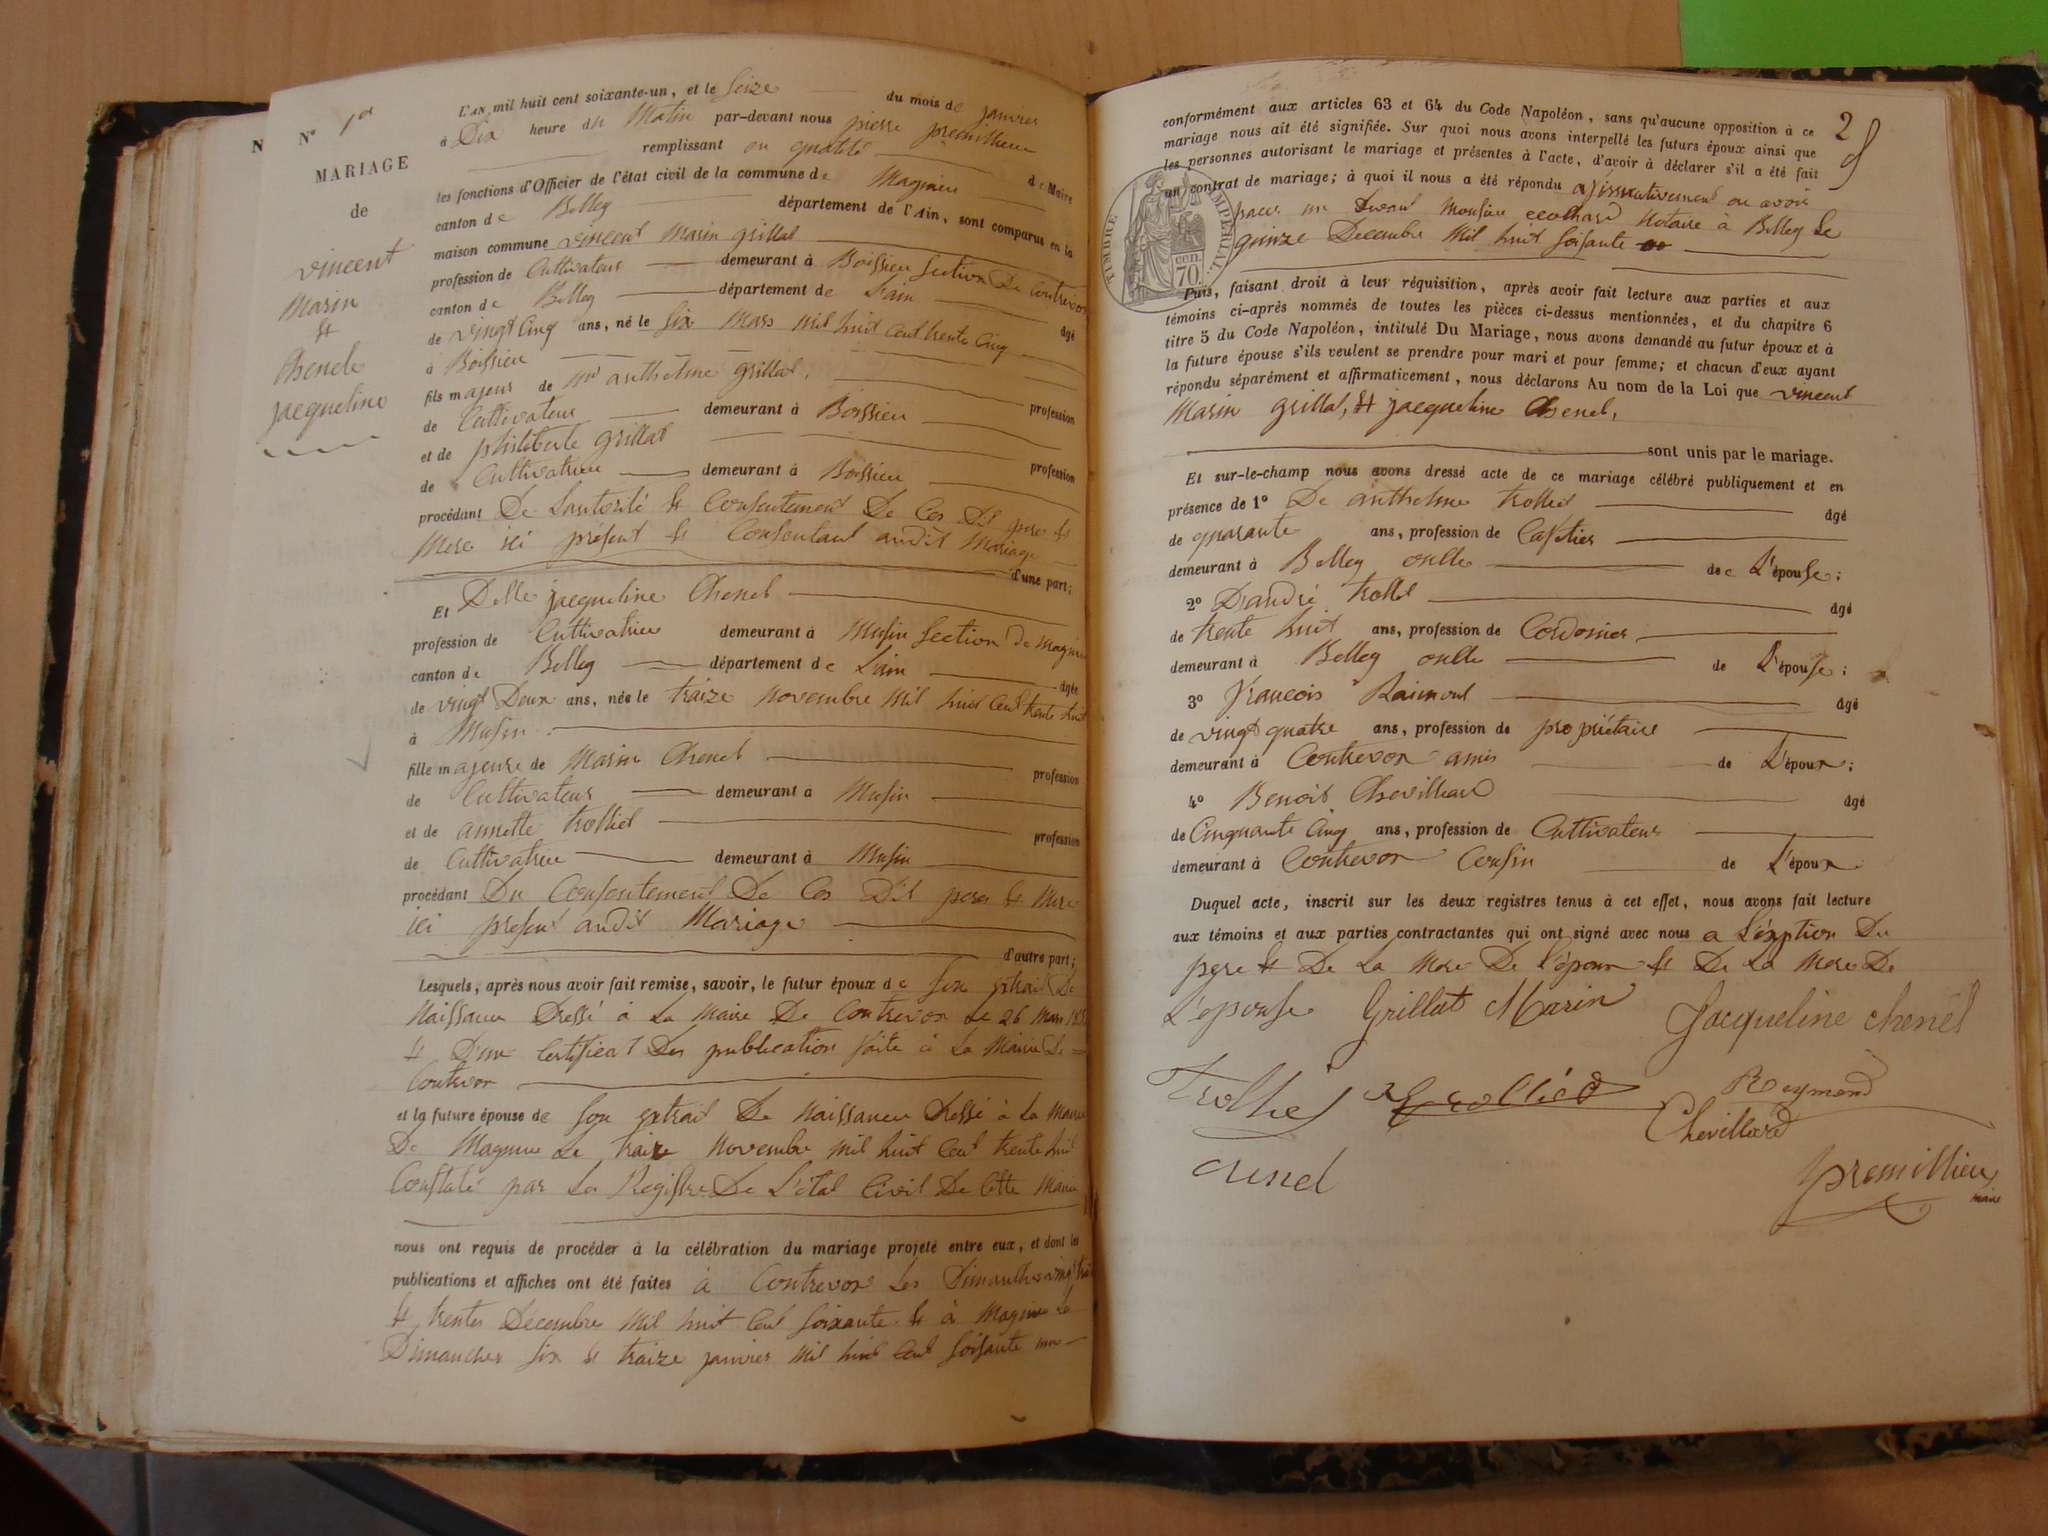 N
N° 1er
MARIAGE
de
vincent
Marin
et
Chenel
jacqueline
L'AN mil huit cent soixante-un, et le Seize du mois de janvier
à Dix heure du Matin par-devant nous pierre premillieu
remplissant en qualité de Maire
les fonctions d'Officier de l'état civil de la commune de Magnieu
canton de Belley département de l'Ain, sont comparus en la
maison commune vincent Marin grillat
profession de Cultivateur demeurant à Boissieu Section De Contrevoz
canton de Belley département de L'ain âgé
de vingt Cinq ans, né le Six Mars mil huit Cent trente Cinq
à Boissieu
fils majeur de mr anthelme grillat, profession
de Cultivateur demeurant à Boissieu
et de philiberte grillat profession
de Cultivatrice demeurant à Boissieu
procédant De Lautorité et Consentement De Ces Dit pere et
Mere ici présent et Consentant audit Mariage
d'une part;
Et Delle jacqueline Chenel
profession de Cultivatrice demeurant à Musin Section de magnieu
canton de Belley département de L'ain âgée
de vingt Deux ans, née le traize Novembre Mil huit Cent trente huit
à Musin
fille majeure de Marin Chenel profession
de Cultivateur demeurant à Musin
et de annette trolliet profession
de Cultivatrice demeurant à Musin
procédant Du Consentement De Ces Dit peres et Mere
ici present audit Mariage
d'autre part;
Lesquels, après nous avoir fait remise, savoir, le futur époux de Son extrait De
Naissance Dressé à La Maire De Contrevoz Le 26 Mars
et D'un Certificat Des publication faite à La Mairie De
Contrevoz
et la future épouse de Son extrait De Naissance Dressé à La Mairie
De Magnieu Le traize Novembre mil huit Cent trente huit
Constaté par Les Registre De L'état Civil De Cette Mairie
nous ont requis de procéder à la célébration du mariage projeté entre eux, et dont les
publications et affiches ont été faites à Contrevoz Les Dimanches vingt trois
et trentes Décembre Mil huit Cent Soixante et à Magnieu Les
Dimanches Six et traize janvier Mil huit Cent Soisante un
2
conformément aux articles 63 et 64 du Code Napoléon, sans qu'aucune opposition à ce
mariage nous ait été signifiée. Sur quoi nous avons interpellé les futurs époux ainsi que
les personnes autorisant le mariage et présentes à l'acte, d'avoir à déclarer s'il a été fait
un contrat de mariage; à quoi il nous a été répondu en avoir
un Devant Monsieur Notaire à Belley Le
quinze Decembre Mil huit Soisante
TIMBRE IMPÉRIAL
70 cen.
Puis, faisant droit à leur réquisition, après avoir fait lecture aux parties et aux
témoins ci-après nommés de toutes les pièces ci-dessus mentionnées, et du chapitre 6
titre 5 du Code Napoléon, intitulé Du Mariage, nous avons demandé au futur époux et à
la future épouse s'ils veulent se prendre pour mari et pour femme; et chacun d'eux ayant
répondu séparément et affirmativement, nous déclarons Au nom de la Loi que vincent
Marin grillat, et jacqueline Chenel,
sont unis par le mariage.
Et sur-le-champ nous avons dressé acte de ce mariage célébré publiquement et en
présence de 1° De anthelme trolliet âgé
de quarante ans, profession de Cafetier
demeurant à Belley oncle de L'épouse;
2° D'andré trolliet âgé
de trente huit ans, profession de Cordonier
demeurant à Belley oncle de L'épouse;
3° François Raimond âgé
de vingt quatre ans, profession de propriétaire
demeurant à Contrevoz amis de L'époux;
4° Benoit Chevillard âgé
de Cinquante Cinq ans, profession de Cultivateur
demeurant à Contrevoz Cousin de L'époux
Duquel acte, inscrit sur les deux registres tenus à cet effet, nous avons fait lecture
aux témoins et aux parties contractantes qui ont signé avec nous a L'éxption Du
pere et De La Mere De l'époux et De La Mere De
L'épouse Grillat Marin Jacqueline Chenel
Trolliet Trolliet Reymond
Chevillard
Chenel premillieu
maire